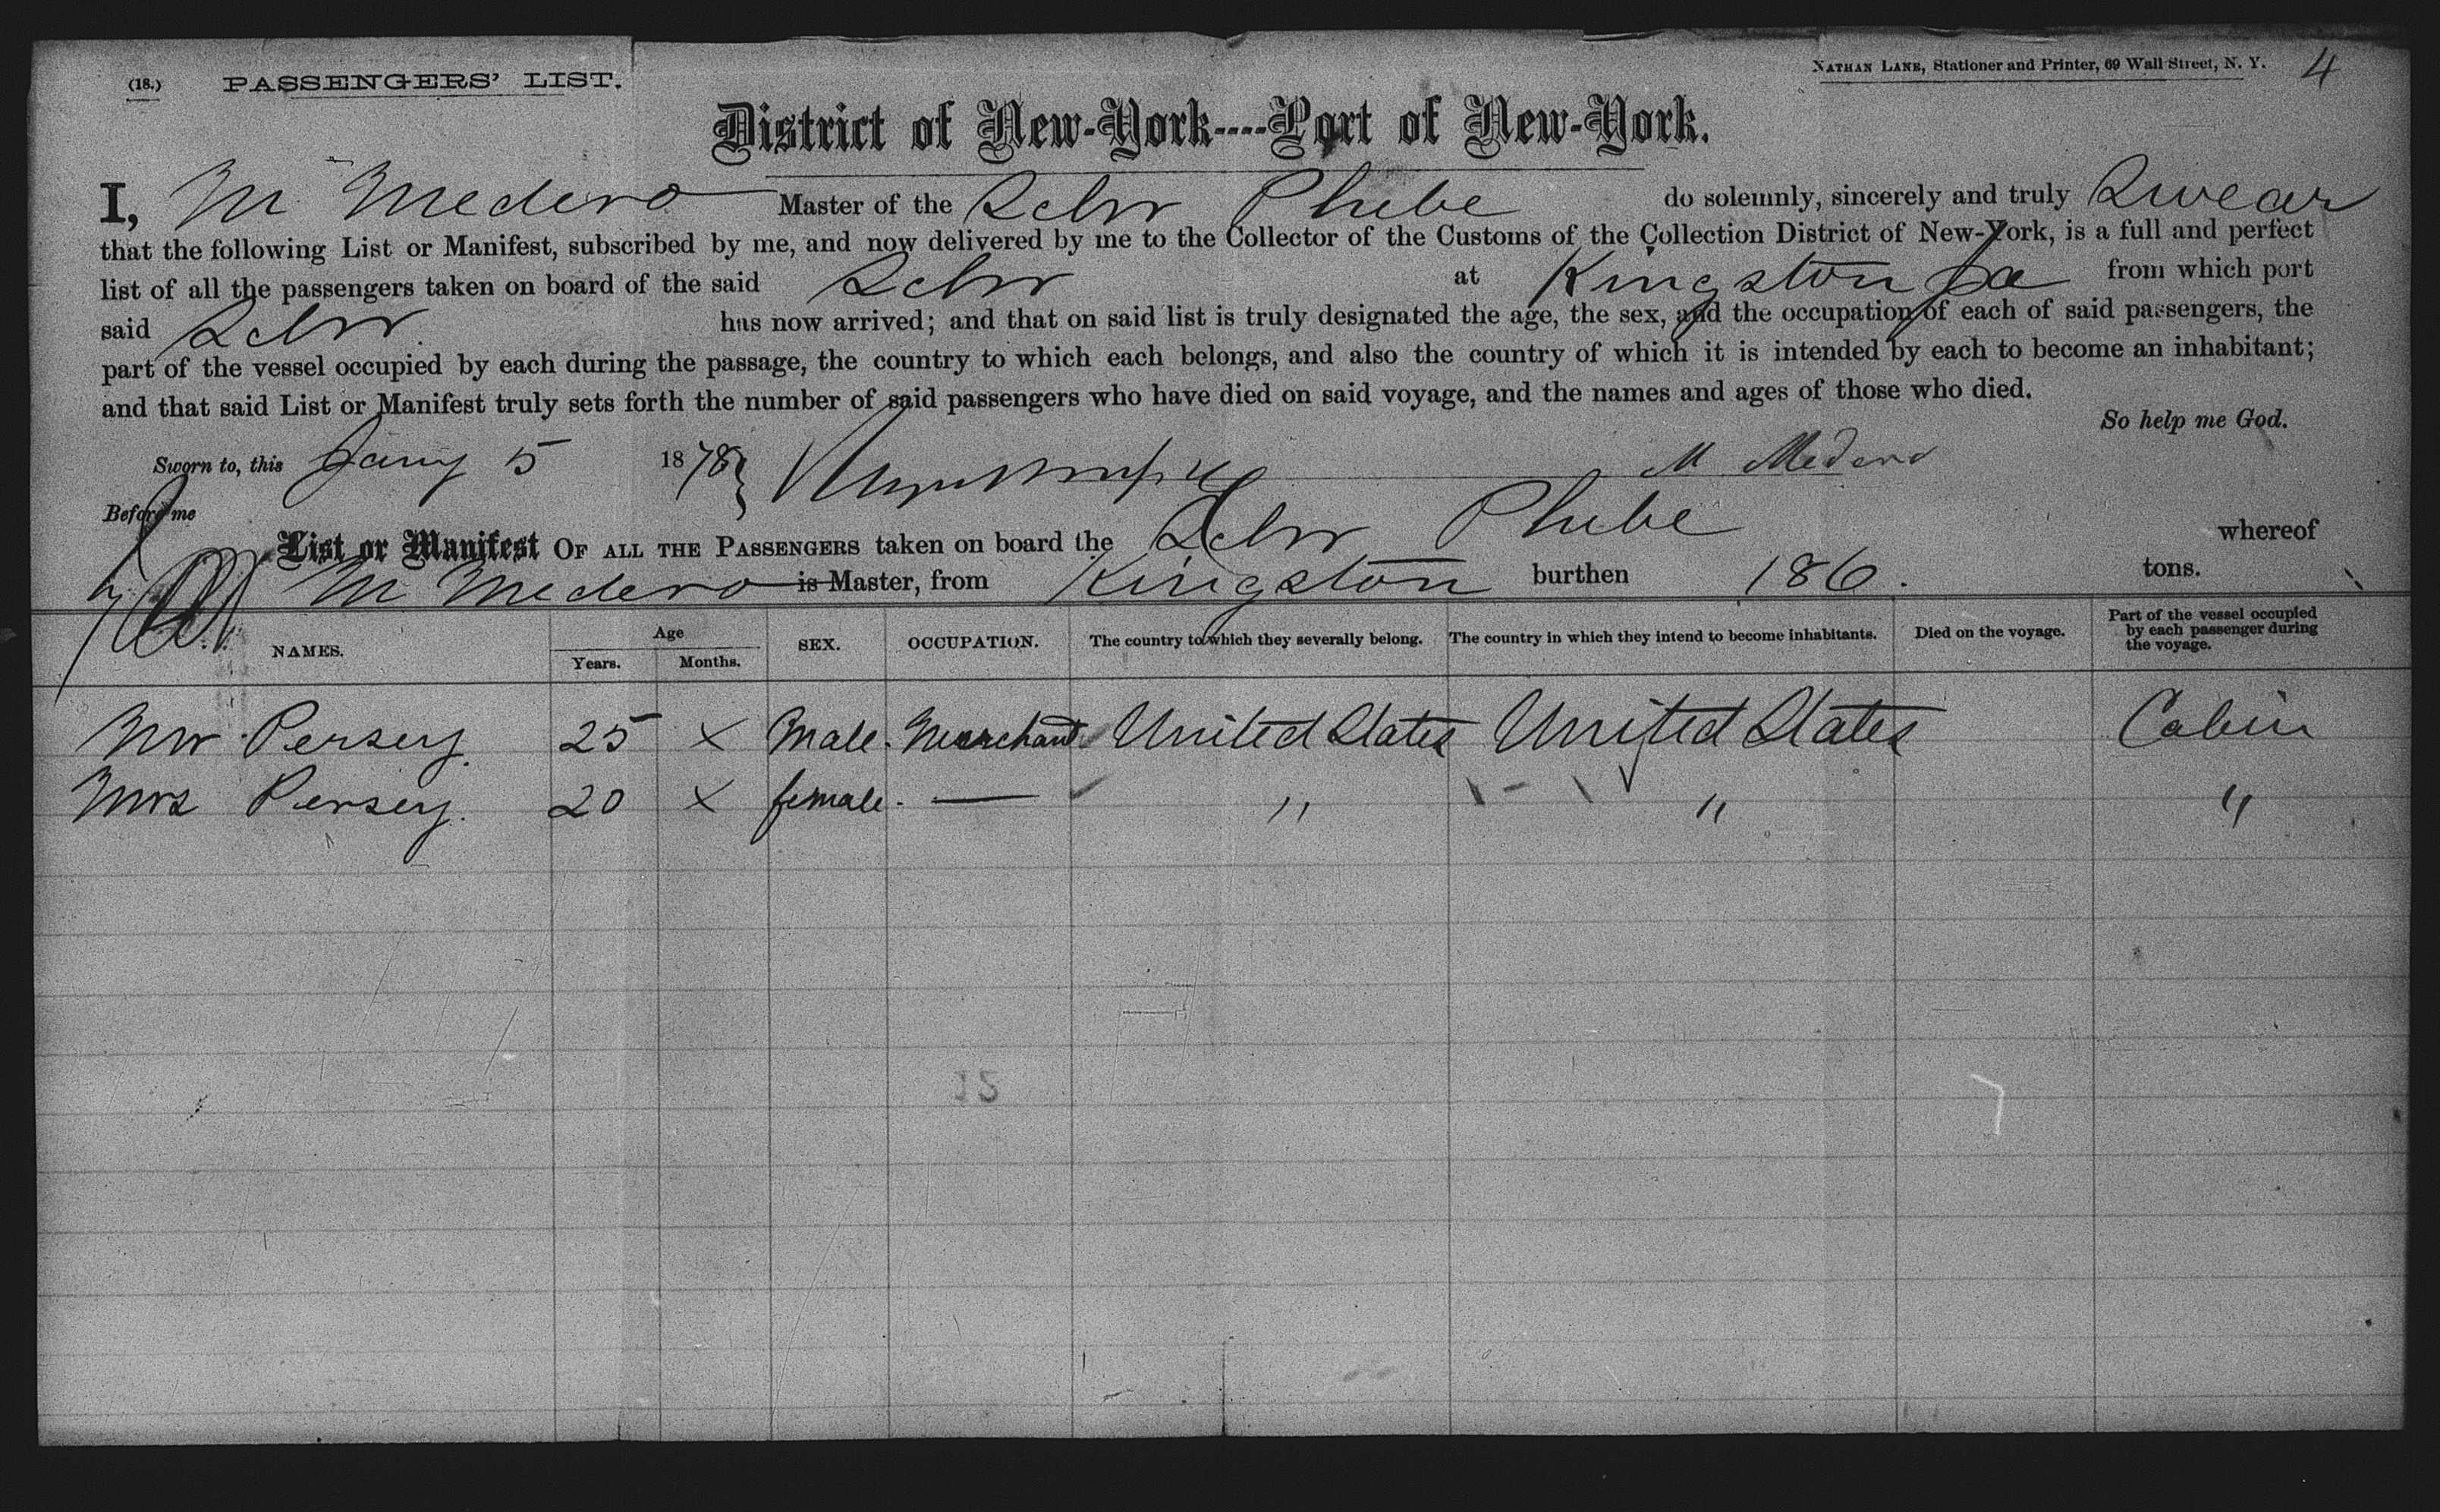 (18.) PASSENGERS' LIST.
NATHAN LANE, Stationer and Printer, 69 Wall Street, N. Y. 4
District of New-York----Port of New-York.
I, M Medero Master of the Schr Phebe do solemnly, sincerely and truly Swear
that the following List or Manifest, subscribed by me, and now delivered by me to the Collector of the Customs of the Collection District of New-York, is a full and perfect
list of all the passengers taken on board of the said Schr at Kingston Ja from which port
said Schr has now arrived; and that on said list is truly designated the age, the sex, and the occupation of each of said passengers, the
part of the vessel occupied by each during the passage, the country to which each belongs, and also the country of which it is intended by each to become an inhabitant;
and that said List or Manifest truly sets forth the number of said passengers who have died on said voyage, and the names and ages of those who died.
So help me God.
Sworn to, this Jany 5 1878 M Medero
Before me
List or Manifest OF ALL THE PASSENGERS taken on board the Schr Phebe whereof
M Medero is Master, from Kingston burthen 186. tons.
NAMES. Age Years. Months. SEX. OCCUPATION. The country to which they severally belong. The country in which they intend to become inhabitants. Died on the voyage. Part of the vessel occupied by each passenger during the voyage.
Mr Persey. 25 x Male. Merchant United States United States Cabin
Mrs Persey. 20 x female. — " " "
12